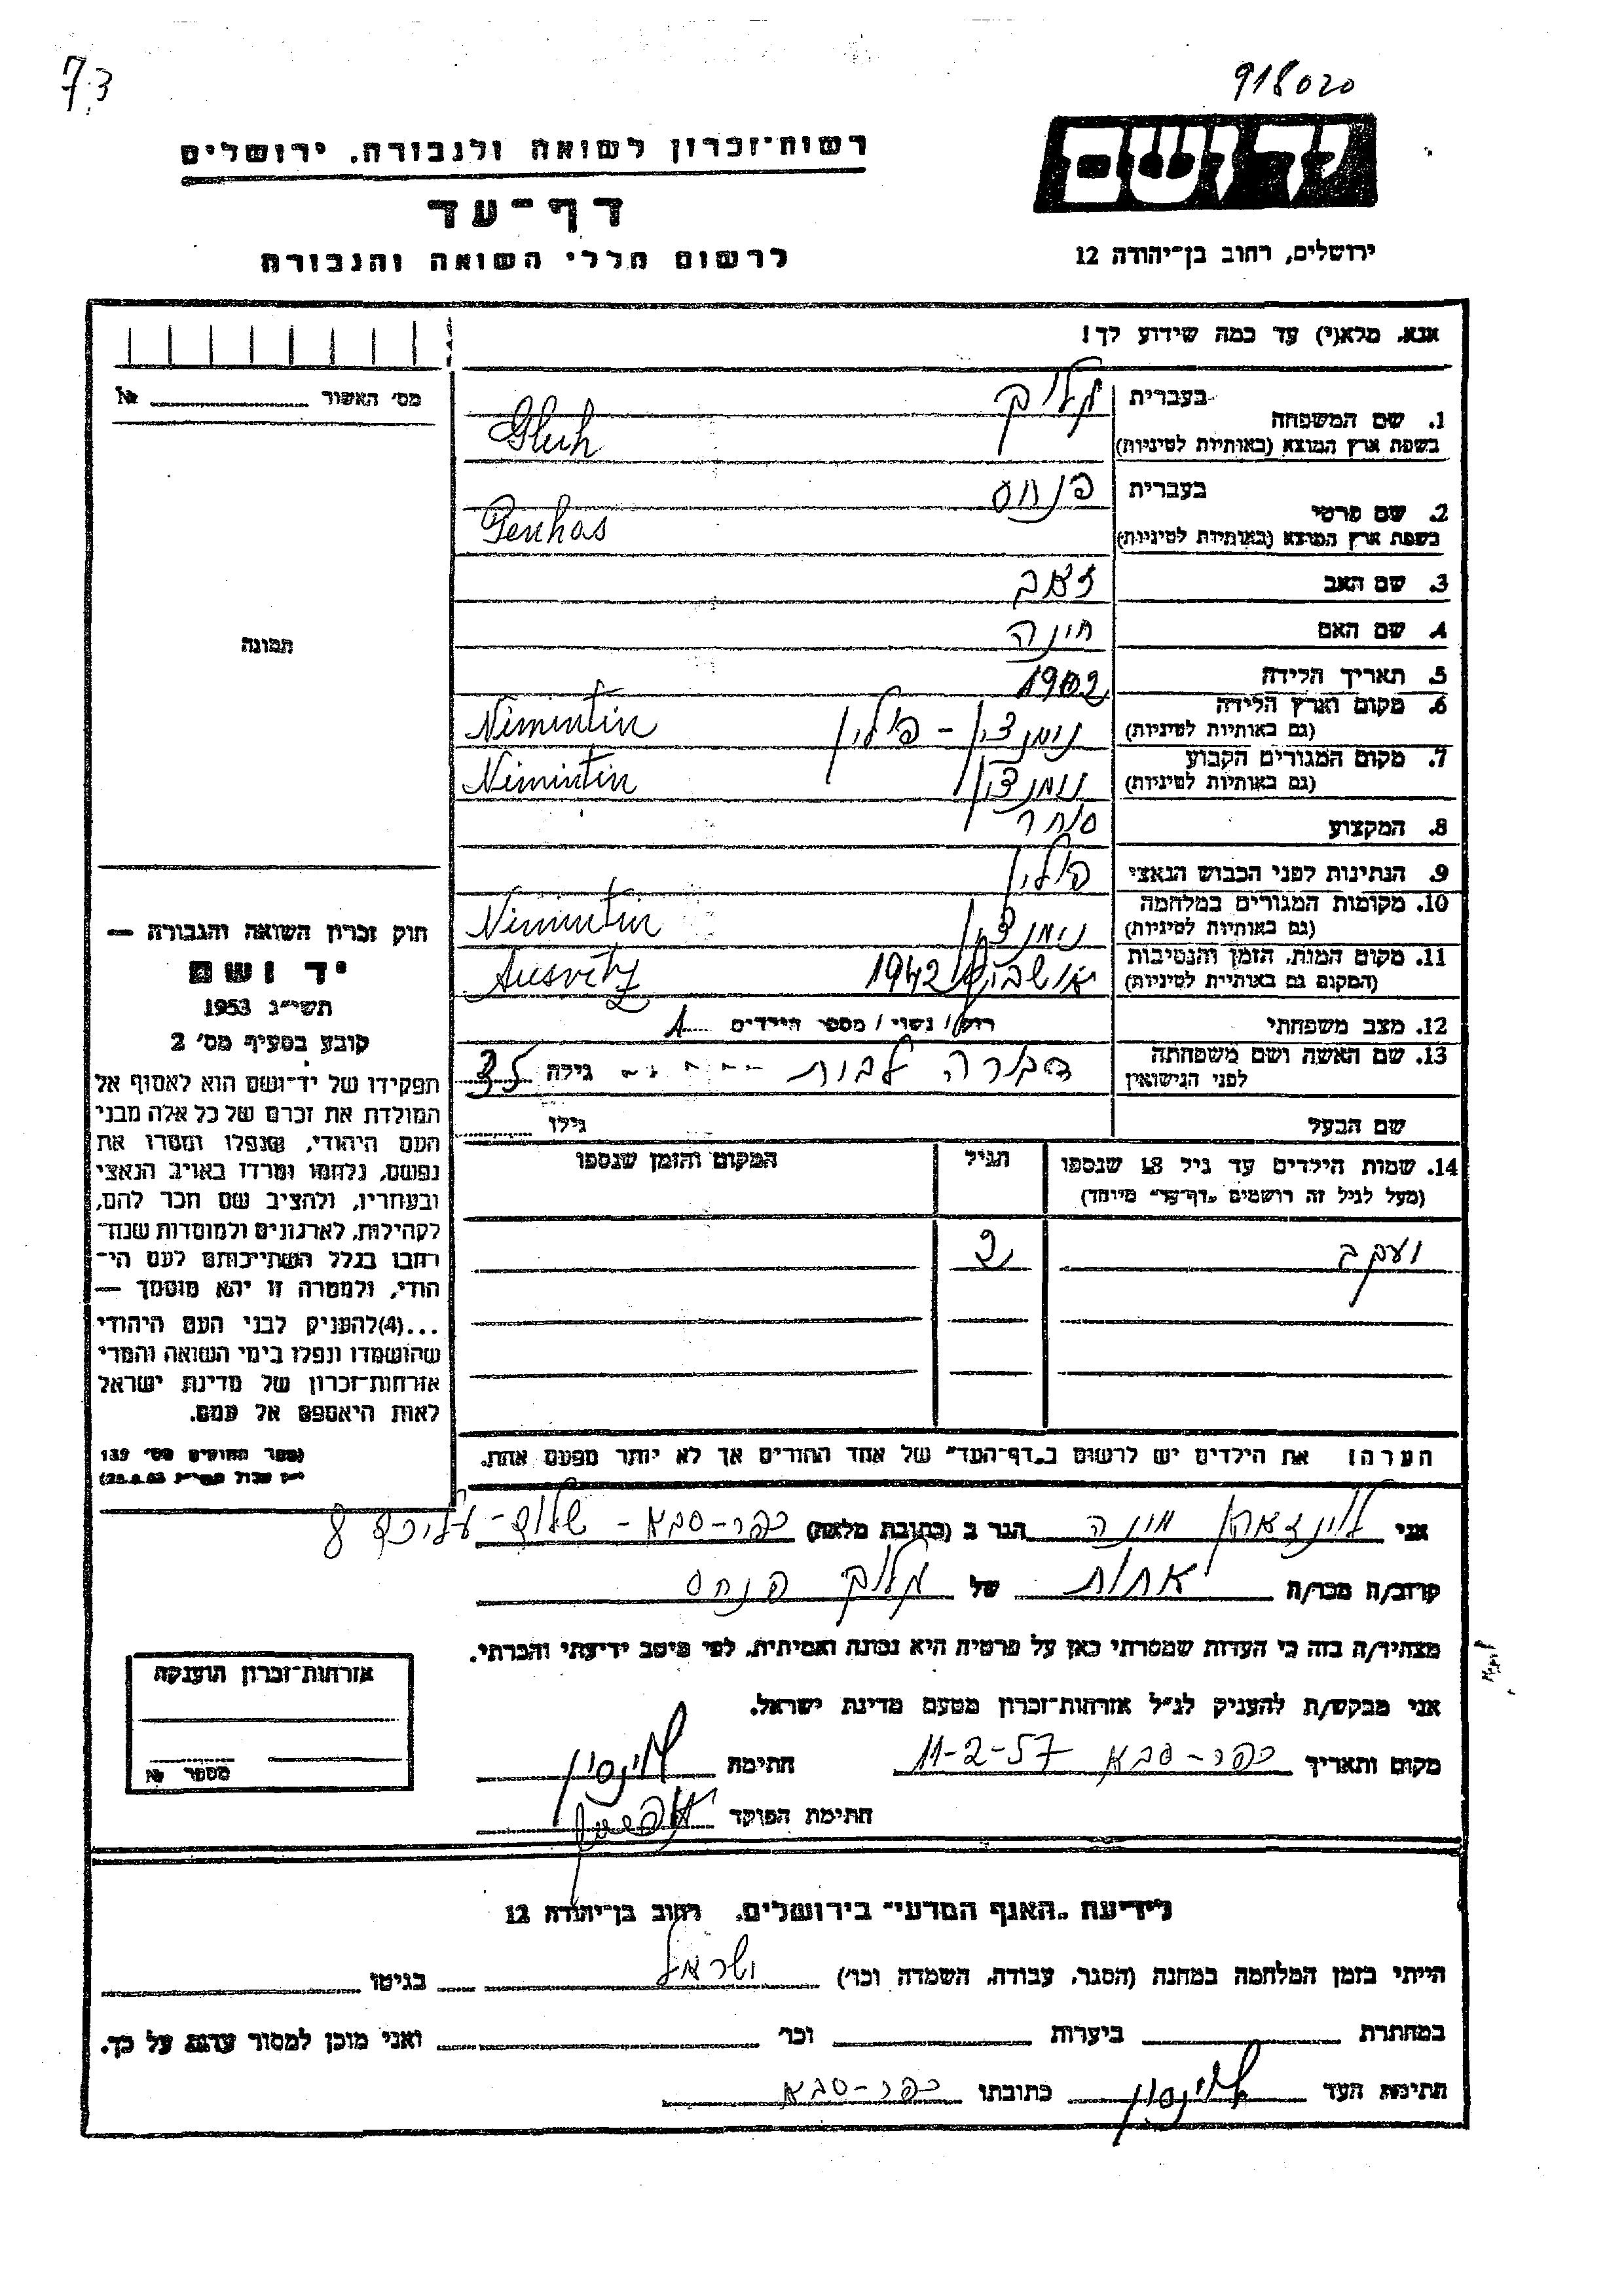 73
918020
יד ושם
רשות־זכרון לשואה ולגבורה, ירושלים
דף־עד
לרשום חללי השואה והגבורה
ירושלים, רחוב בן־יהודה 12
אנא, מלא(י) עד כמה שידוע לך!
מס' האשור № 
1. שם המשפחה
בעברית
בשפת ארץ המוצא (באותיות לטיניות)
Gluh
2. שם פרטי
בעברית פנחס
בשפת ארץ המוצא (באותיות לטיניות)
Penhas
3. שם האב זאב
4. שם האם חינה
5. תאריך הלידה 1902
6. מקום וארץ הלידה
(גם באותיות לטיניות) נימנצין - פולין Nimintin
7. מקום המגורים הקבוע
(גם באותיות לטיניות) נימנצין Nimintin
8. המקצוע סוחר
9. הנתינות לפני הכבוש הנאצי פולין
10. מקומות המגורים במלחמה
(גם באותיות לטיניות) נימנצין Nimintin
11. מקום המות, הזמן והנסיבות
(המקום גם באותיות לטיניות) אושביץ 1942 Ausvitz
12. מצב משפחתי רווק / נשוי / מספר הילדים 1
13. שם האשה ושם משפחתה
לפני הנישואין דבורה לבות גילה 35
שם הבעל גילו
14. שמות הילדים עד גיל 18 שנספו
(מעל לגיל זה רושמים "דף־עד" מיוחד)
הגיל
המקום והזמן שנספו
יעקב 2
הערה: את הילדים יש לרשום ב"דף־העד" של אחד ההורים אך לא יותר מפעם אחת.
תמונה
חוק זכרון השואה והגבורה —
יד ושם
תשי"ג 1953
קובע בסעיף מס' 2
תפקידו של יד־ושם הוא לאסוף אל
המולדת את זכרם של כל אלה מבני
העם היהודי, שנפלו ומסרו את
נפשם, נלחמו ומרדו באויב הנאצי
ובעוזריו, ולהציב שם וזכר להם,
לקהילות, לארגונים ולמוסדות שנח־
רבו בגלל השתייכותם לעם הי־
הודי, ולמטרה זו יהא מוסמך —
...(4) להעניק לבני העם היהודי
שהושמדו ונפלו בימי השואה והמרי
אזרחות־זכרון של מדינת ישראל
לאות היאספם אל עמם.
(ספר החוקים מס' 132
אני מינה הגר ב (כתובת מלאה) כפר-סבא - שלום-עליכם 8
קרוב/ה מכר/ה אחות של פנחס
מצהיר/ה בזה כי העדות שמסרתי כאן על פרטיה היא נכונה ואמיתית, לפי מיטב ידיעתי והכרתי.
אני מבקש/ת להעניק לנ"ל אזרחות־זכרון מטעם מדינת ישראל.
מקום ותאריך כפר-סבא 11-2-57 חתימה
חתימת הפוקד
אזרחות־זכרון הוענקה
מספר №
לידיעת "האגף המדעי" בירושלים, רחוב בן־יהודה 12
הייתי בזמן המלחמה במחנה (הסגר, עבודה, השמדה וכו') ישראל בגיטו
במחתרת ביערות וכו' ואני מוכן למסור עדות על כך.
חתימת העד כתובתו כפר-סבא